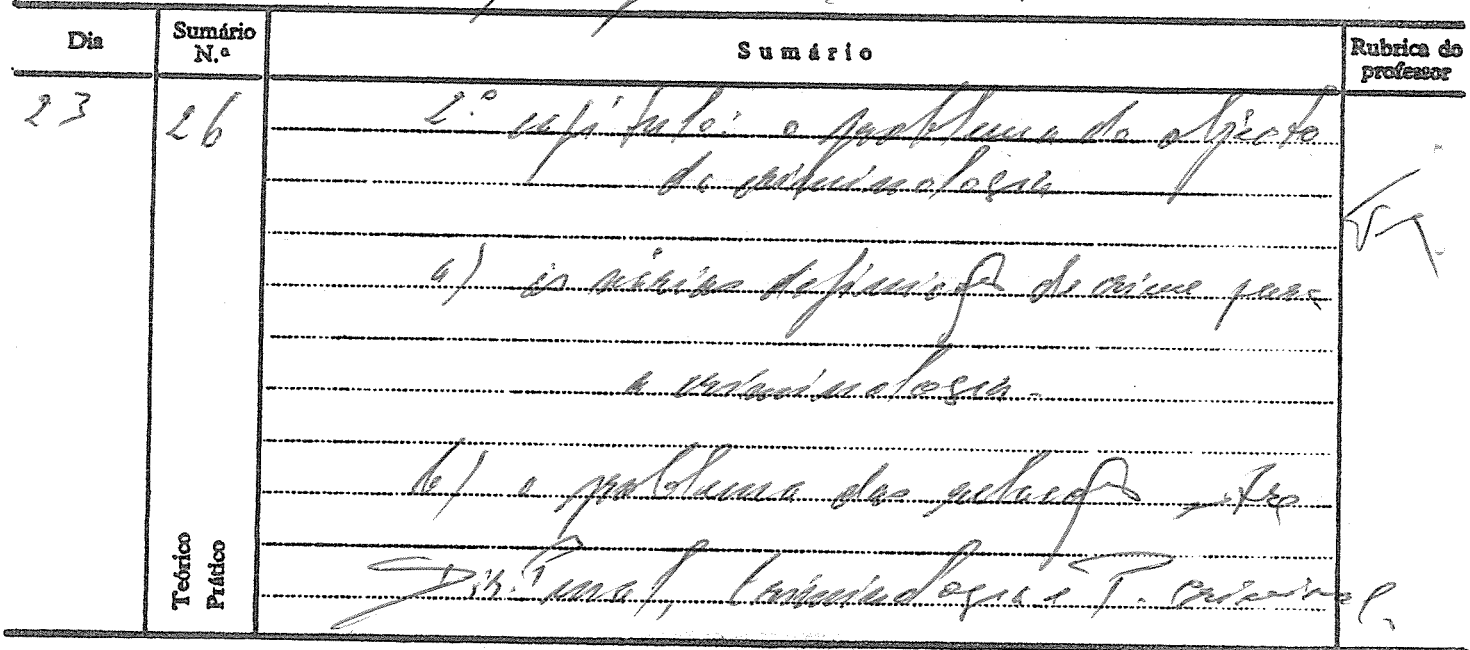 Dia
Sumário N.º
Sumário
Rubrica do professor
23
26
2.º capítulo: o problema do objecto
da criminologia
a) as várias definições de crime para
a criminologia.
b) o problema das relações entre
Dir. Penal, Criminologia e P. Criminal.
Teórico
Prático